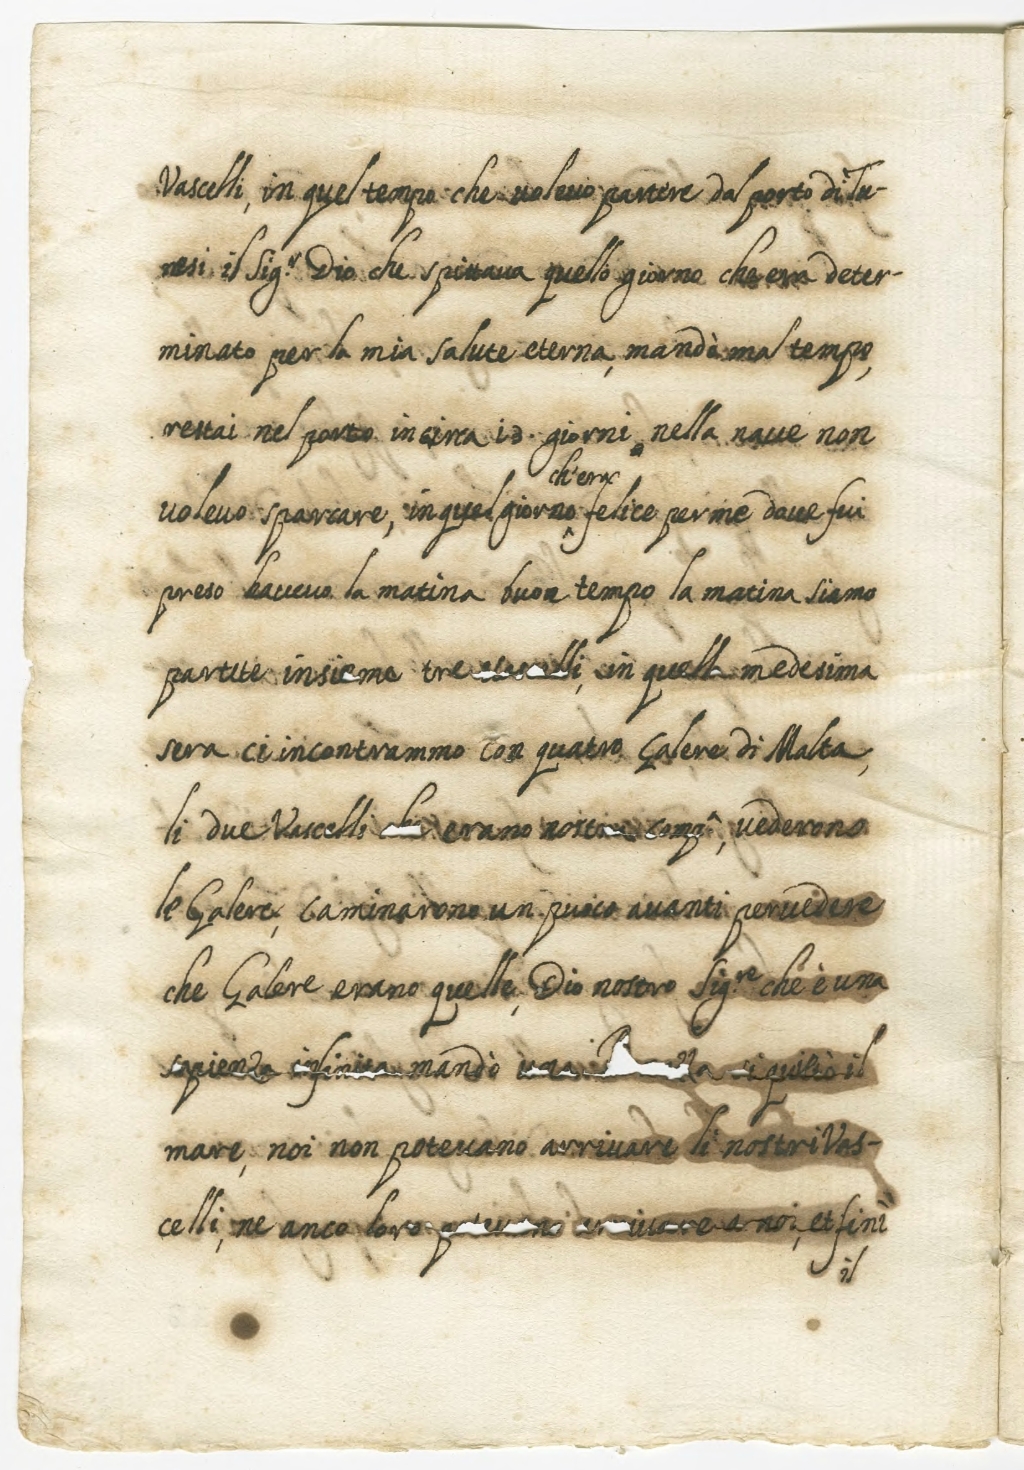 Vascelli, in quel tempo che volevo partire dal porto di Tu-
nesi il Sig.r Dio che spittava quello giorno che era deter-
minato per la mia salute eterna, mandò mal tempo,
restai nel porto in circa giorni, nella nave non
volevo sparcare, in quel giorno ch'era felice per me dove fui
preso havevo la matina buon tempo la matina siamo
partite insieme tre in quella medesima
sera ci incontrammo con quatro Galere di Malta,
li due Vascelli che erano nostra comp.a, vederono
le Galere, caminarono un puoco avanti per vedere
che Galere erano quelle, Dio nostro Sig.re che è una
sapienza infinita mandò una si quiitò il
mare, noi non potevano arrivare li nostri Vas-
celli, ne anco loro potevano arrivare a noi, et finì
il